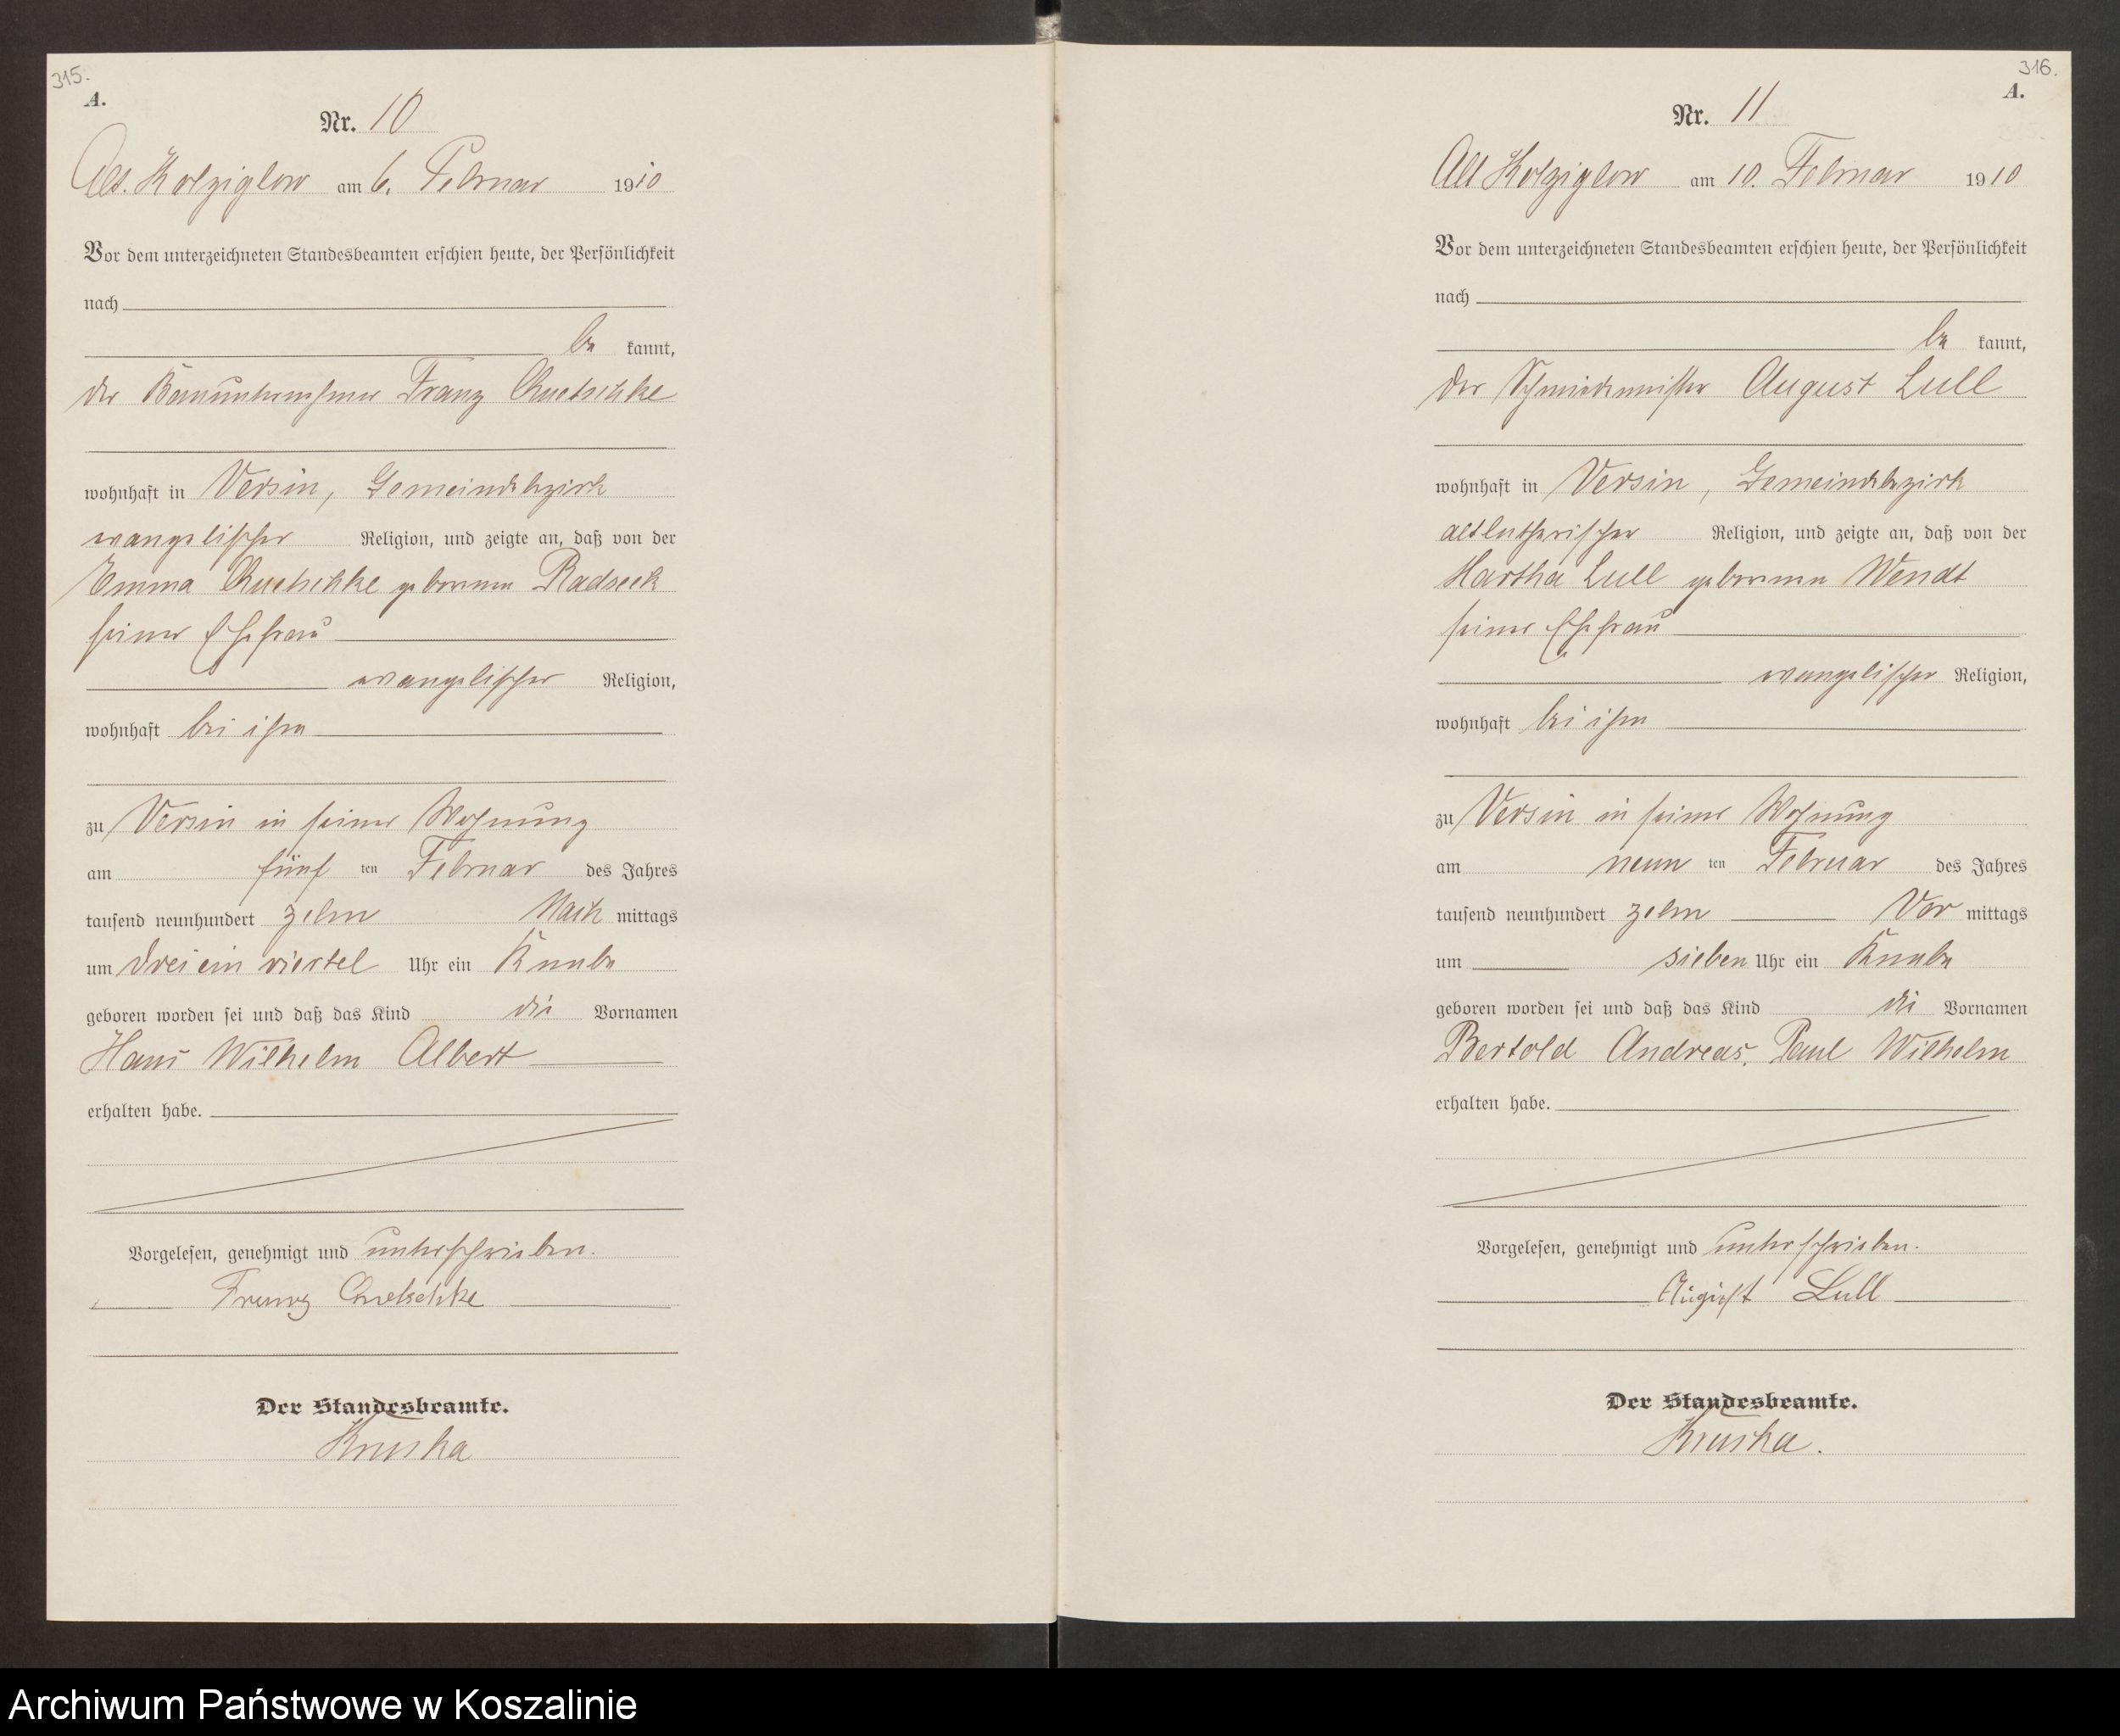 315.
A.
Nr. 10
Alt. Kolziglow am 6. Februar 1910
Vor dem unterzeichneten Standesbeamten erschien heute, der Persönlichkeit
nach
be kannt,
der Bauunternehmer Franz Quetschke
wohnhaft in Versin, Gemeindebezirk
evangelischer Religion, und zeigte an, daß von der
Emma Quetschke geborenen Radseck
seiner Ehefrau
evangelischer Religion,
wohnhaft bei ihm
zu Versin in seiner Wohnung
am fünf ten Februar des Jahres
tausend neunhundert zehn Nach mittags
um drei ein viertel Uhr ein Knabe
geboren worden sei und daß das Kind die Vornamen
Hans Wilhelm Albert
erhalten habe.
Vorgelesen, genehmigt und unterschrieben.
Franz Quetschke
Der Standesbeamte.
Kruska
316.
A.
Nr. 11
Alt Kolziglow am 10. Februar 1910
Vor dem unterzeichneten Standesbeamten erschien heute, der Persönlichkeit
nach
be kannt,
der Schmiedemeister August Lull
wohnhaft in Versin, Gemeindebezirk
altlutherischer Religion, und zeigte an, daß von der
Martha Lull geborenen Wendt
seiner Ehefrau
evangelischer Religion,
wohnhaft bei ihm
zu Versin in seiner Wohnung
am neun ten Februar des Jahres
tausend neunhundert zehn Vor mittags
um sieben Uhr ein Knabe
geboren worden sei und daß das Kind die Vornamen
Bertold Andreas, Paul Wilhelm
erhalten habe.
Vorgelesen, genehmigt und unterschrieben.
August Lull
Der Standesbeamte.
Kruska.
Archiwum Państwowe w Koszalinie